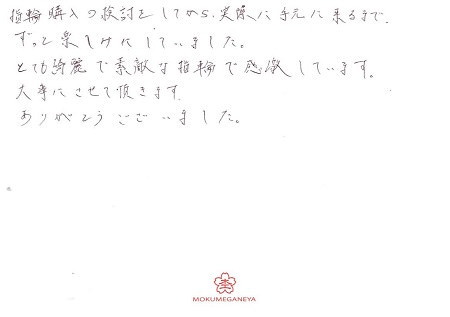 指輪購入の検討をしてから、実際に手元に来るまで、
ずっと楽しみにしていました。
とても綺麗で素敵な指輪で感激しています。
大事にさせて頂きます。
ありがとうございました。
MOKUMEGANEYA